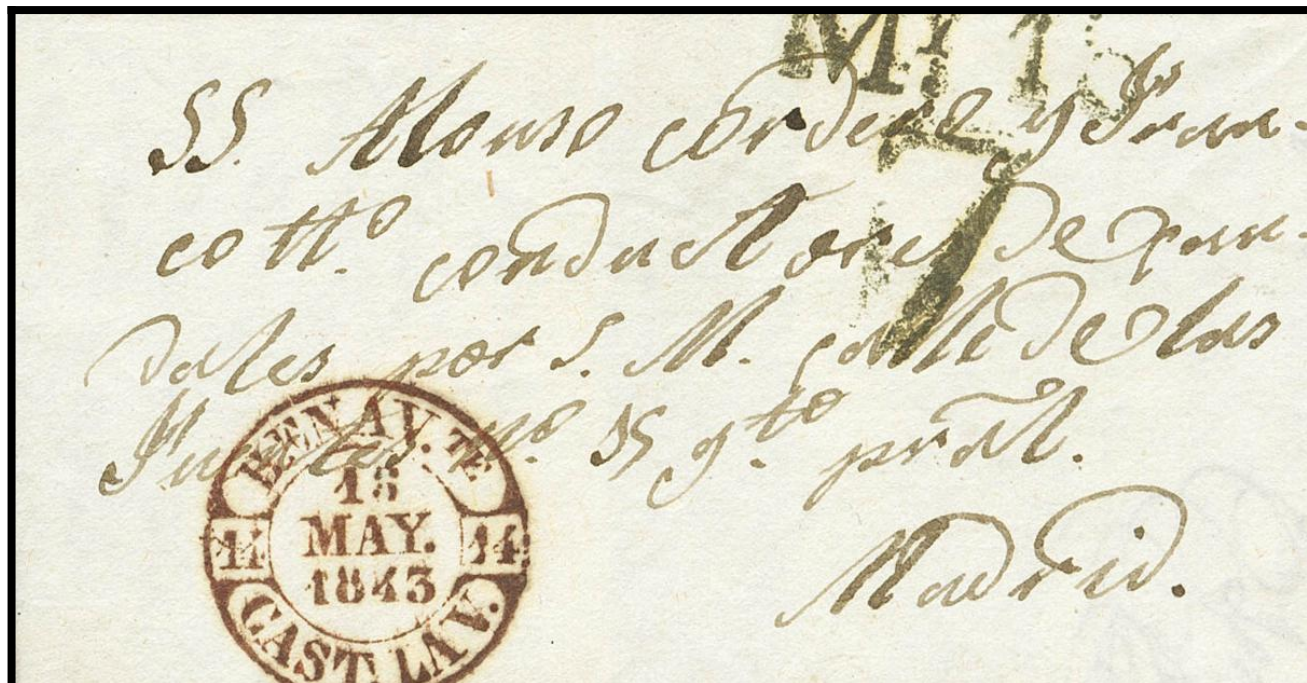 SS. Alonso Cordero y Fran-
co tt.º conductores de cau-
dales por S. M. calle de las
Fuentes n.º
pral.
Madrid.
7
BENAV.TE
15
MAY.
1843
14 14
CAST. LA V.